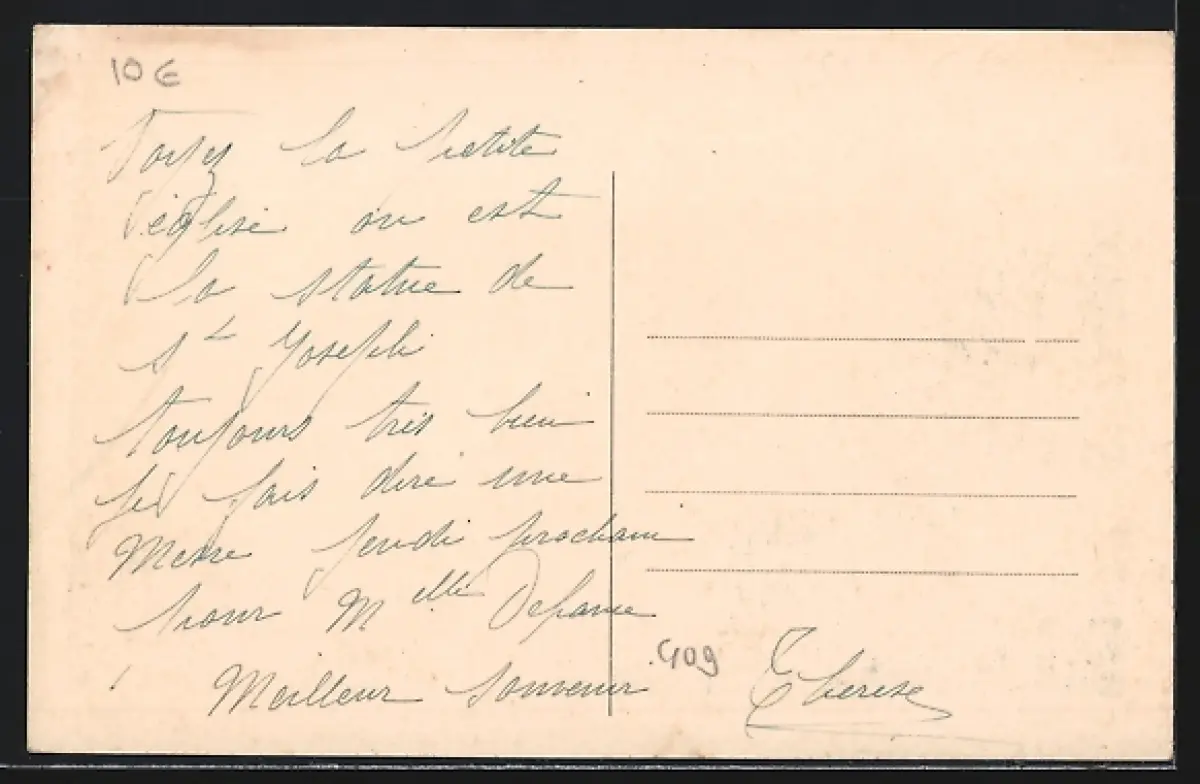 10 €
Voyez la petite
église ou est
la statue de
St Joseph
toujours très bien
je fais dire une
Messe jeudi prochain
pour Melle
Meilleur souvenir
409
Therese